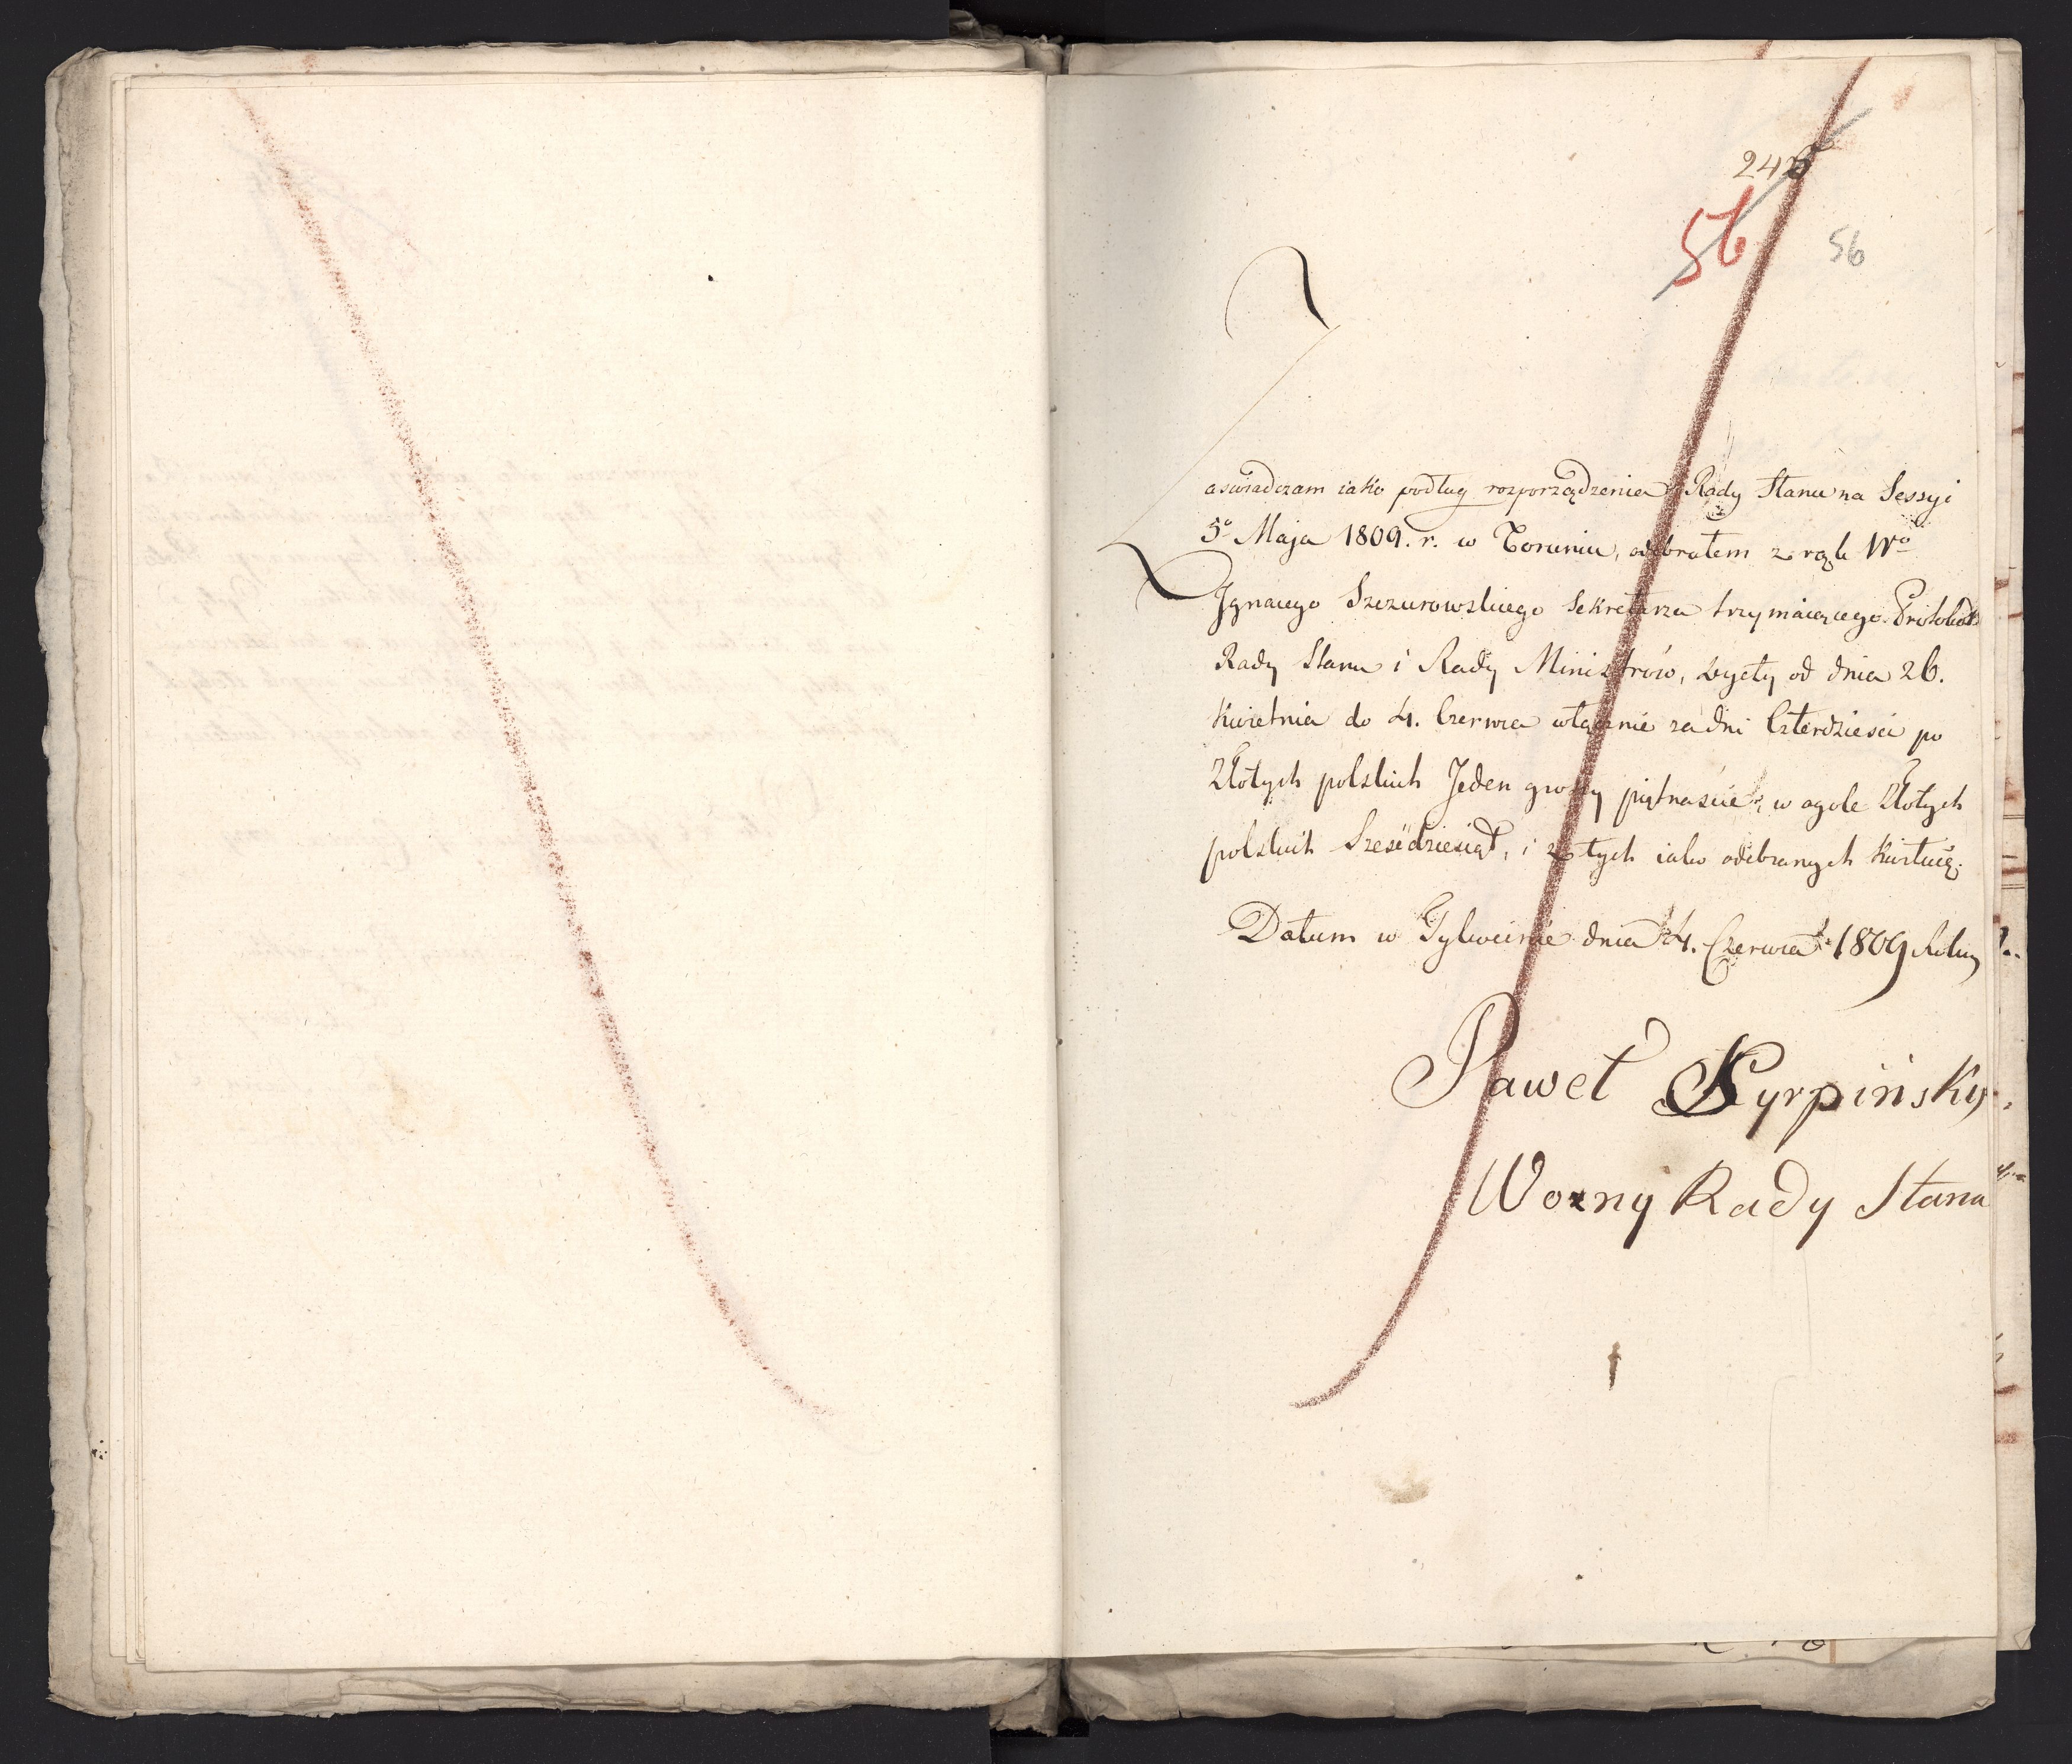 242
56
56
Zaswiadczam iako podług rozporządzenia Rady Stanu na Sessyi
5º Maja 1809. r. w Toruniu, odebrałem z rąk Wº
Ignacego Szczurowskiego Sekretarza trzymaiącego Protokół
Rady Stanu i Rady Ministrów, dyety od dnia 26.
Kwietnia do 4. Czerwca włącznie za dni Czterdziesci po
Złotych polskich Jeden groszy piętnascie, w ogole Złotych
polskich Szescdziesiąt, i z tych iako odebranych kwituię.
Datum w Tykocinie dnia 4. Czerwca 1809 Roku
Paweł Kyrpińsky.
Wozny Rady Stanu